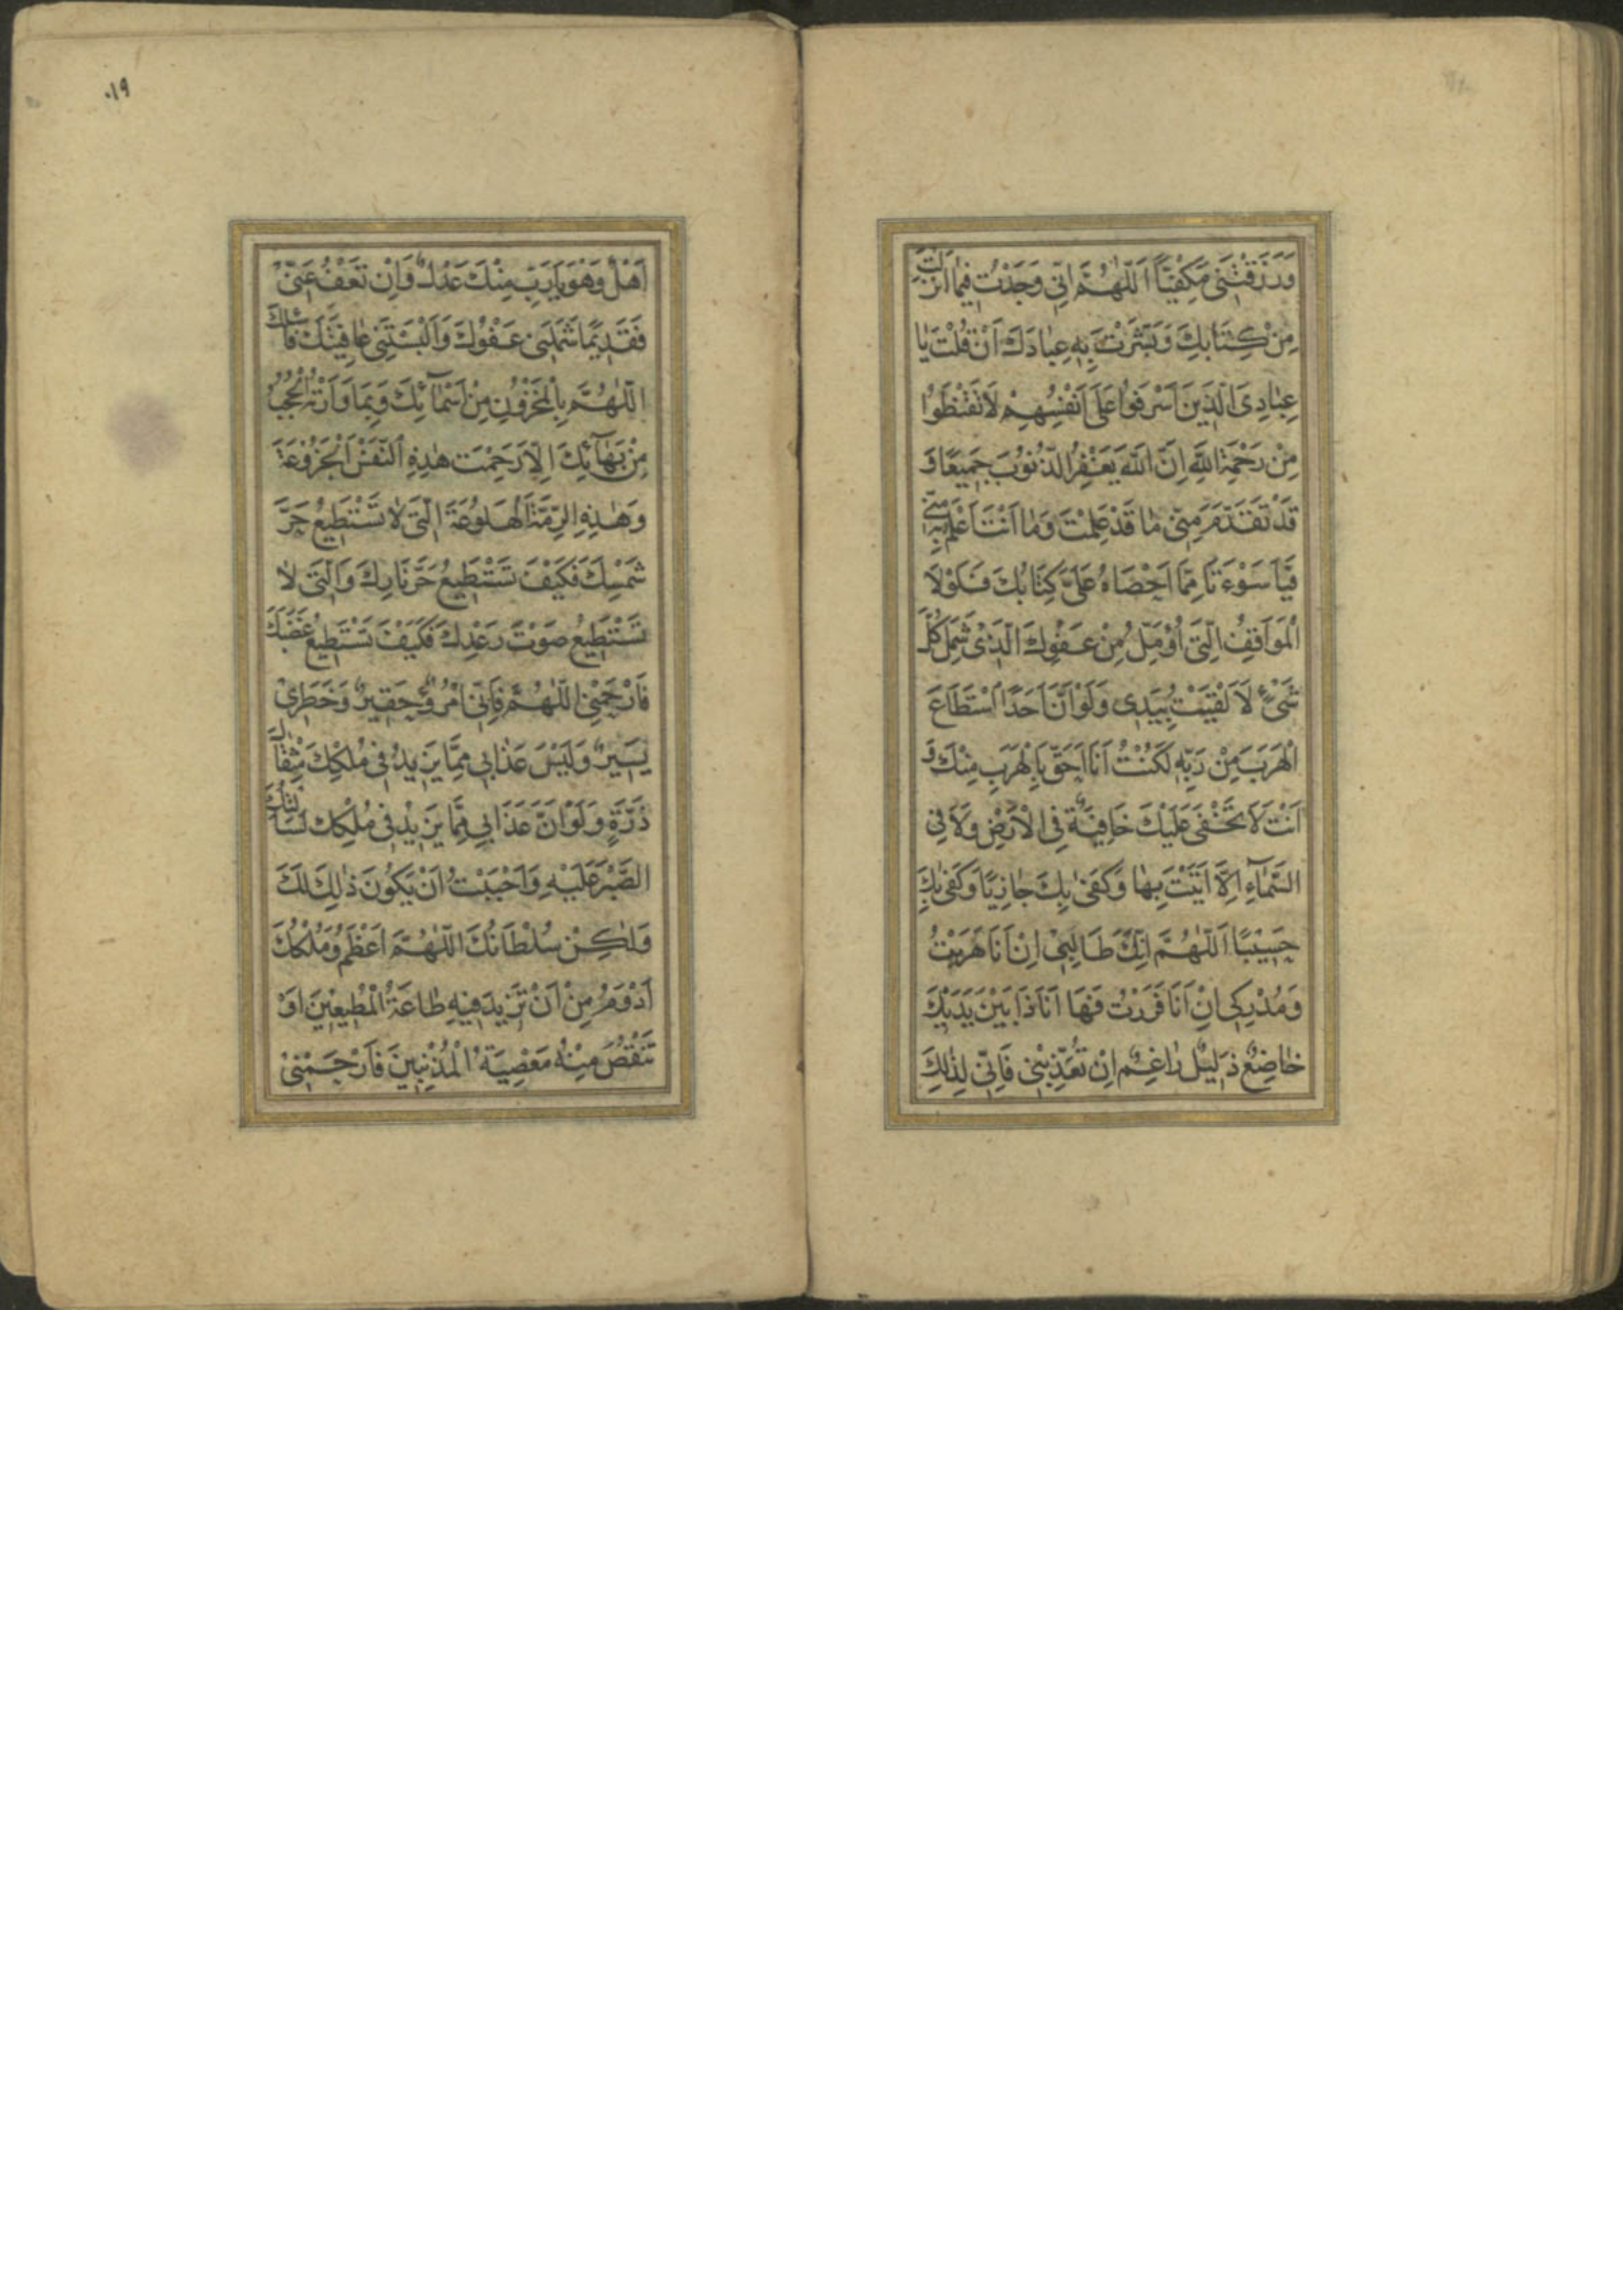 وَرَزَقْتَنِي مَكْفِيًّا اَللّٰهُمَّ اِنِّي وَجَدْتُ فِيمٰا اَنْزَلْتَ
مِنْ كِتَابِكَ وَبَشَّرْتَ بِهِ عِبٰادَكَ اَنْ قُلْتَ يٰا
عِبٰادِيَ الَّذِينَ اَسْرَفُوا عَلَى اَنْفُسِهِمْ لَا تَقْنَطُوا
مِنْ رَحْمَةِ اللَّهِ اِنَّ اللَّهَ يَغْفِرُ الذُّنُوبَ جَمِيعًا وَ
قَدْ تَقَدَّمَ مِنِّي مٰا قَدْ عَلِمْتَ وَمٰا اَنْتَ اَعْلَمُ بِهِ مِنِّي
فَيَا سَوْءَتَا مِمَّا اَحْصَاهُ عَلَيَّ كِتَابُكَ فَلَوْلَا
الْمَوَاقِفُ الَّتِي اُؤَمِّلُ مِنْ عَفْوِكَ الَّذِي شَمِلَ كُلَّ
شَيْءٍ لَاَلْقَيْتُ بِيَدِي وَلَوْ اَنَّ اَحَدًا اسْتَطَاعَ
الْهَرَبَ مِنْ رَبِّهِ لَكُنْتُ اَنَا اَحَقَّ بِالْهَرَبِ مِنْكَ وَ
اَنْتَ لَا تَخْفَى عَلَيْكَ خَافِيَةٌ فِي الْاَرْضِ وَلَا فِي
السَّمٰآءِ اِلَّا اَتَيْتَ بِهٰا وَكَفىٰ بِكَ جٰازِيًا وَكَفىٰ بِكَ
حَسِيبًا اَللّٰهُمَّ اِنَّكَ طَالِبِي اِنْ اَنَا هَرَبْتُ
وَمُدْرِكِي اِنْ اَنَا فَرَرْتُ فَهَا اَنَا ذَا بَيْنَ يَدَيْكَ
خٰاضِعٌ ذَلِيلٌ رٰاغِمٌ اِنْ تُعَذِّبْنِي فَاِنِّي لِذٰلِكَ
٠١٩
اَهْلٌ وَهُوَ يَا رَبِّ مِنْكَ عَدْلٌ وَاِنْ تَعْفُ عَنِّي
فَقَدِيمًا شَمَلَنِي عَفْوُكَ وَاَلْبَسْتَنِي عٰافِيَتَكَ فَاَسْئَلُكَ
اللّٰهُمَّ بِالْمَخْزُونِ مِنْ اَسْمٰآئِكَ وَبِمَا وَارَتْهُ الْحُجُبُ
مِنْ بَهٰآئِكَ اِلَّا رَحِمْتَ هٰذِهِ النَّفْسَ الْجَزُوعَةَ
وَهٰذِهِ الرِّمَّةَ الْهَلُوعَةَ الَّتِي لَا تَسْتَطِيعُ حَرَّ
شَمْسِكَ فَكَيْفَ تَسْتَطِيعُ حَرَّ نَارِكَ وَالَّتِي لَا
تَسْتَطِيعُ صَوْتَ رَعْدِكَ فَكَيْفَ تَسْتَطِيعُ غَضَبَكَ
فَارْحَمْنِي اللّٰهُمَّ فَاِنِّي امْرُؤٌ حَقِيرٌ وَخَطَرِي
يَسِيرٌ وَلَيْسَ عَذٰابِي مِمَّا يَزِيدُ فِي مُلْكِكَ مِثْقٰالَ
ذَرَّةٍ وَلَوْ اَنَّ عَذَابِي مِمَّا يَزِيدُ فِي مُلْكِكَ لَسَاَلْتُكَ
الصَّبْرَ عَلَيْهِ وَاَحْبَبْتُ اَنْ يَكُونَ ذٰلِكَ لَكَ
وَلٰكِنْ سُلْطَانُكَ اللّٰهُمَّ اَعْظَمُ وَمُلْكُكَ
اَدْوَمُ مِنْ اَنْ تَزِيدَ فِيهِ طٰاعَةُ الْمُطِيعِينَ اَوْ
تَنْقُصَ مِنْهُ مَعْصِيَةُ الْمُذْنِبِينَ فَارْحَمْنِي